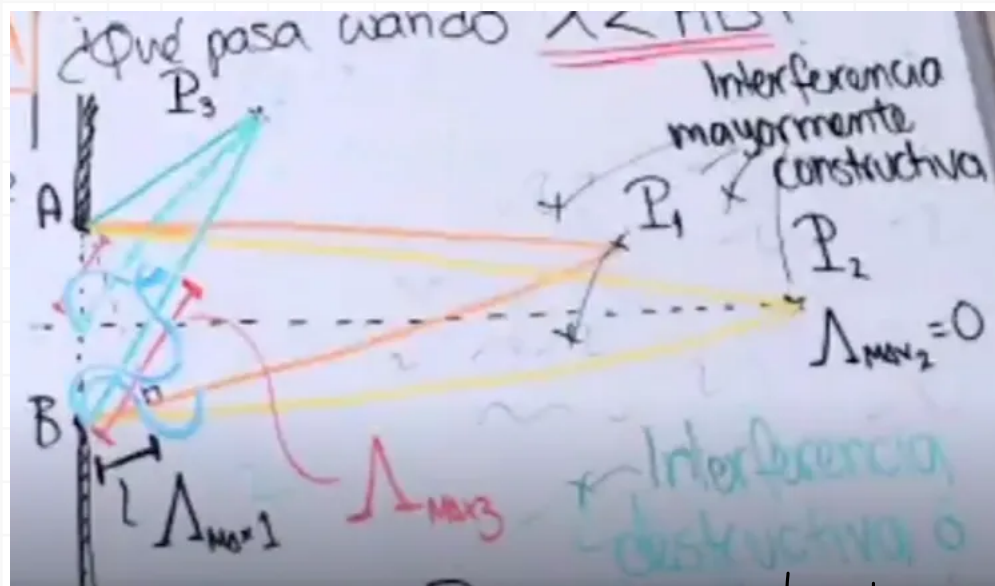 ¿Qué pasa cuando λ < AB?
Interferencia
mayormente
constructiva
P₃
A
P₁
P₂
Λmáx₂ = 0
B
Λmáx3
Λmáx1
Interferencia
destructiva, o